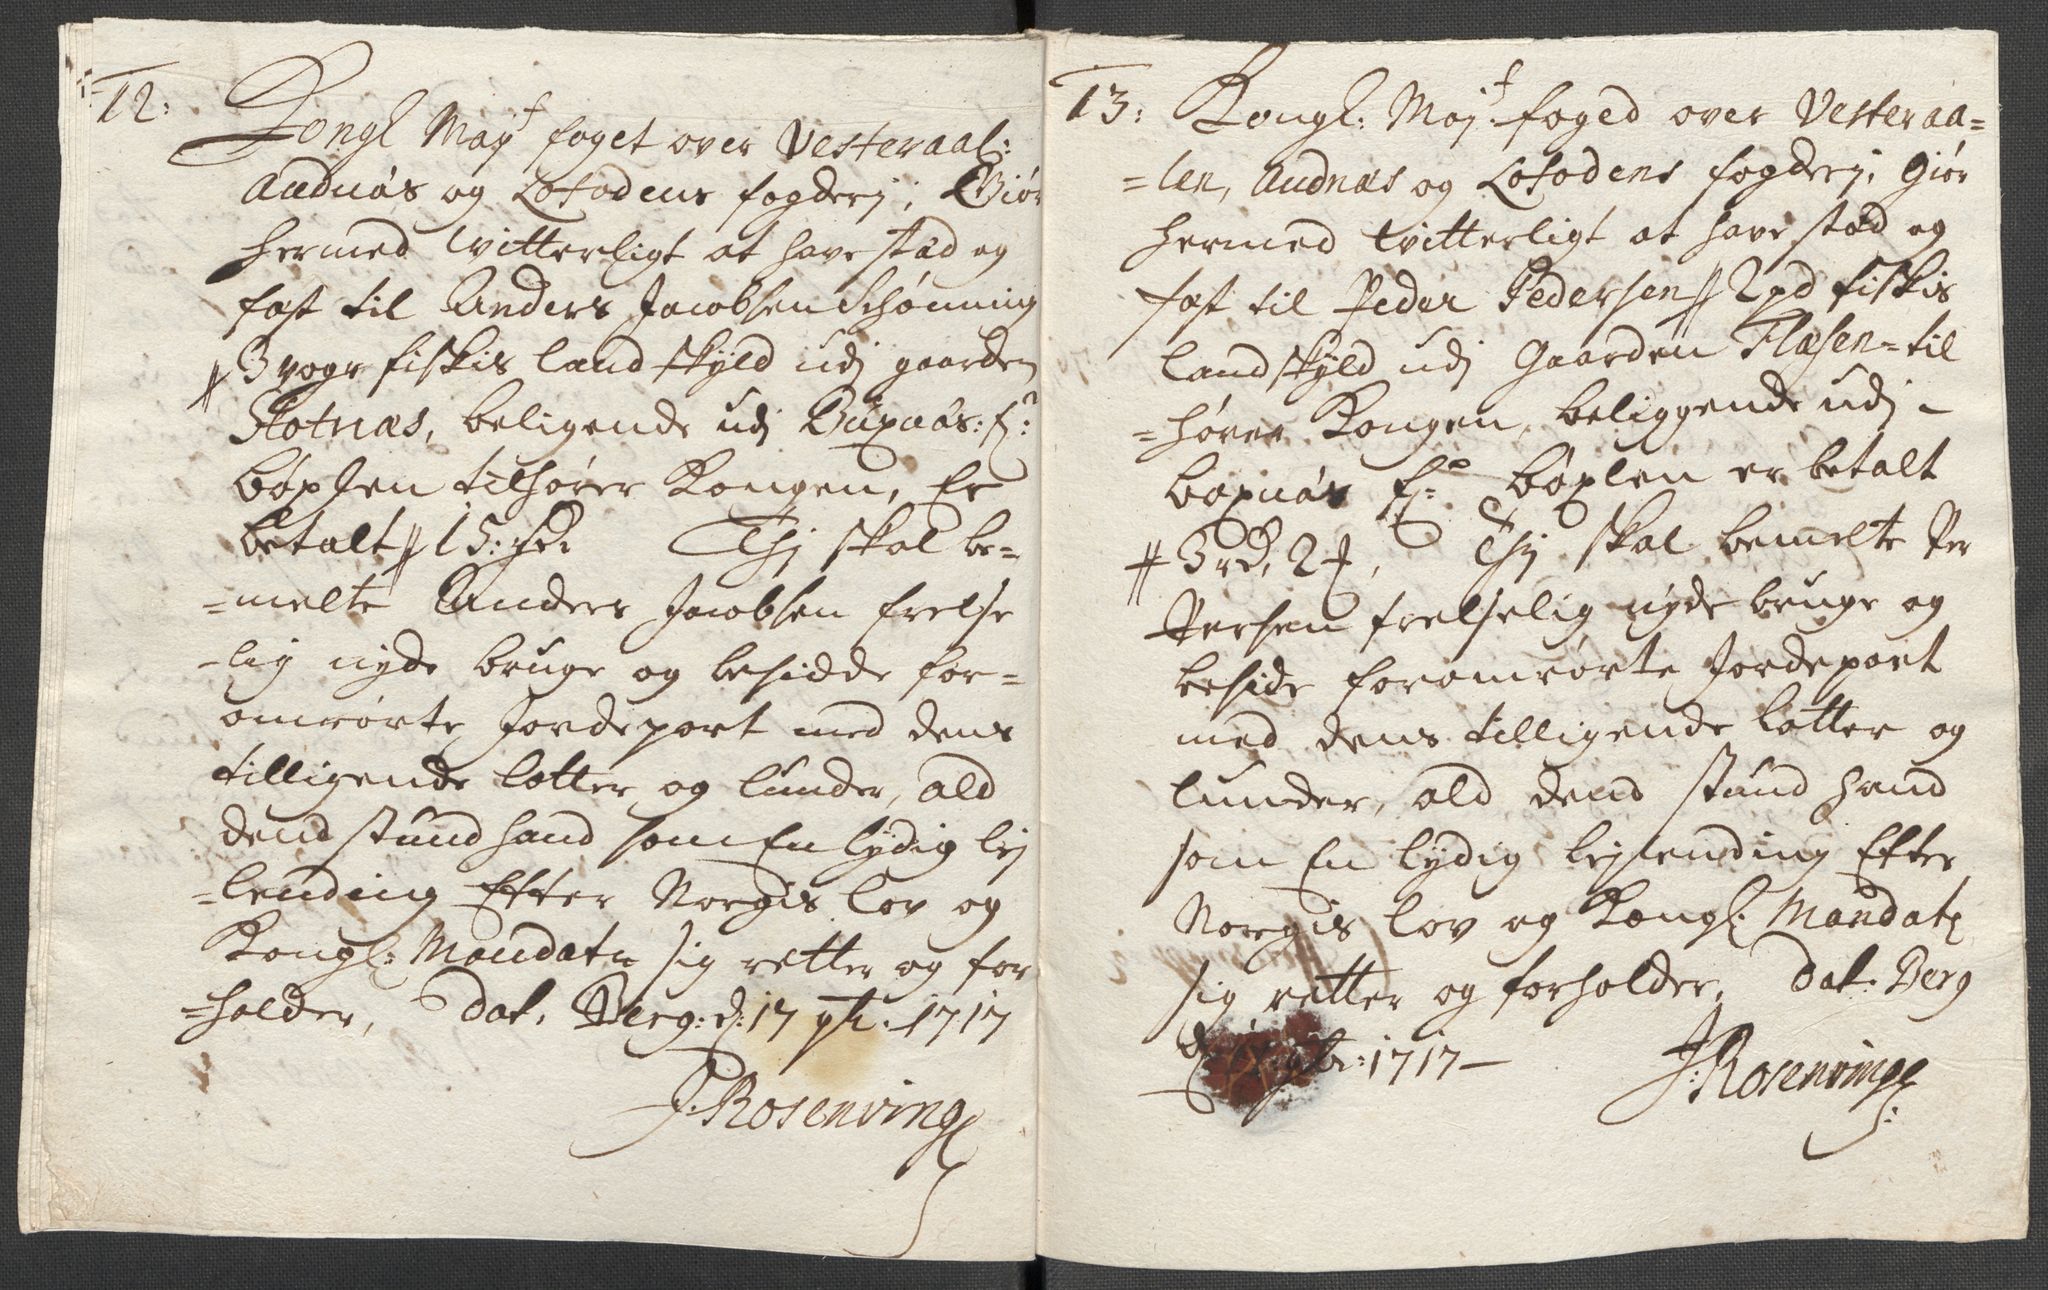 12:
Kongl May.t foget over Vesteraal:
Andnæs og Lofodens fogderj; Giør
hermed Vitterligt at have stæd og
fæst til Anders Jacobsen Schønning
3 vogr fiskis land skyld udj gaarden
Flotnæs, beligende udj Buxnæs: f:
bøxlen tilhører Kongen, Er
betalt 15: Thj skal be=
=melte Anders Jacobsen frelse
=lig nyde bruge og besidde for=
omrørte Jordepart med dens
tilligende lotter og lunder, ald
dend stund hand som En lydig lej
=lending Efter Norgis lov og
Kongl: Mandater sig retter og for
=holder, Dat. Berg: d: 17 1717
J: Rosenvinge
13:
Kongl: May.t foged over Vesteraa=
=len, Andnæs og Lofodens fogderj, Giør
hermed Vitterligt at have stæd og
fæst til Peder Pedersen 2 pd fiskis
landskyld udj Gaarden Flæsen til
=hører Kongen, beliggende udj
Boxnæs f: bøxlen er betalt
3 rd, 2 Thj skal bemelte Per
Persen frelselig nyde bruge og
beside foromrørte Jordepart
med dens tilligende lotter og
lunder, ald dend stund hand
som En lydig lejlending Efter
Norgis lov og Kongl: Mandat
sig retter og forholder, Dat. Berg
1717
J: Rosenvinge